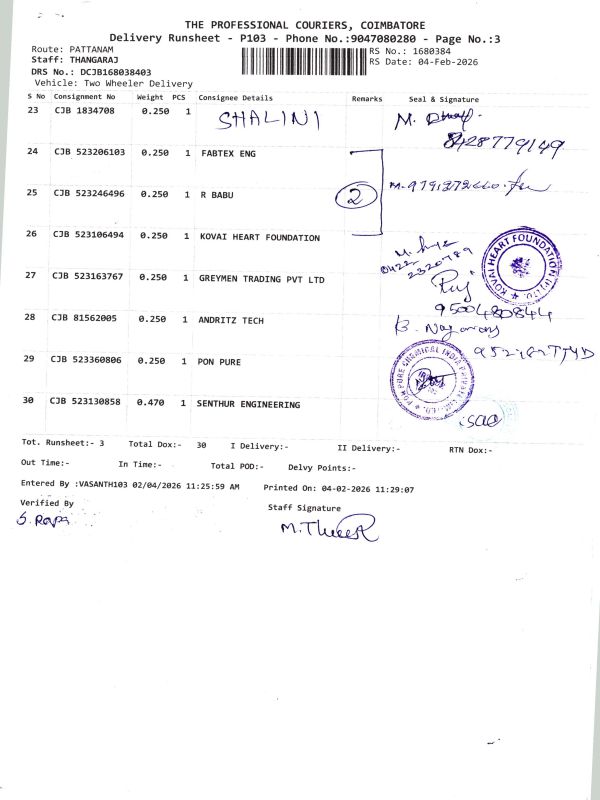 THE PROFESSIONAL COURIERS, COIMBATORE
Delivery Runsheet - P103 - Phone No.:9047080280 - Page No.:3
Route: PATTANAM
RS No.: 1680384
Staff: THANGARAJ
RS Date: 04-Feb-2026
DRS No.: DCJB168038403
Vehicle: Two Wheeler Delivery
S No Consignment No Weight PCS Consignee Details Remarks Seal & Signature
23 CJB 1834708 0.250 1 SHALINI M.
8428779149
24 CJB 523206103 0.250 1 FABTEX ENG
25 CJB 523246496 0.250 1 R BABU 2
26 CJB 523106494 0.250 1 KOVAI HEART FOUNDATION
0422
2320789
KOVAI HEART FOUNDATION (P) LTD.
27 CJB 523163767 0.250 1 GREYMEN TRADING PVT LTD
9500480844
28 CJB 81562005 0.250 1 ANDRITZ TECH B.
29 CJB 523360806 0.250 1 PON PURE
PON PURE CHEMICAL INDIA PRIVATE LIMITED.
30 CJB 523130858 0.470 1 SENTHUR ENGINEERING
Tot. Runsheet:- 3 Total Dox:- 30 I Delivery:- II Delivery:- RTN Dox:-
Out Time:- In Time:- Total POD:- Delvy Points:-
Entered By :VASANTH103 02/04/2026 11:25:59 AM Printed On: 04-02-2026 11:29:07
Verified By
Staff Signature